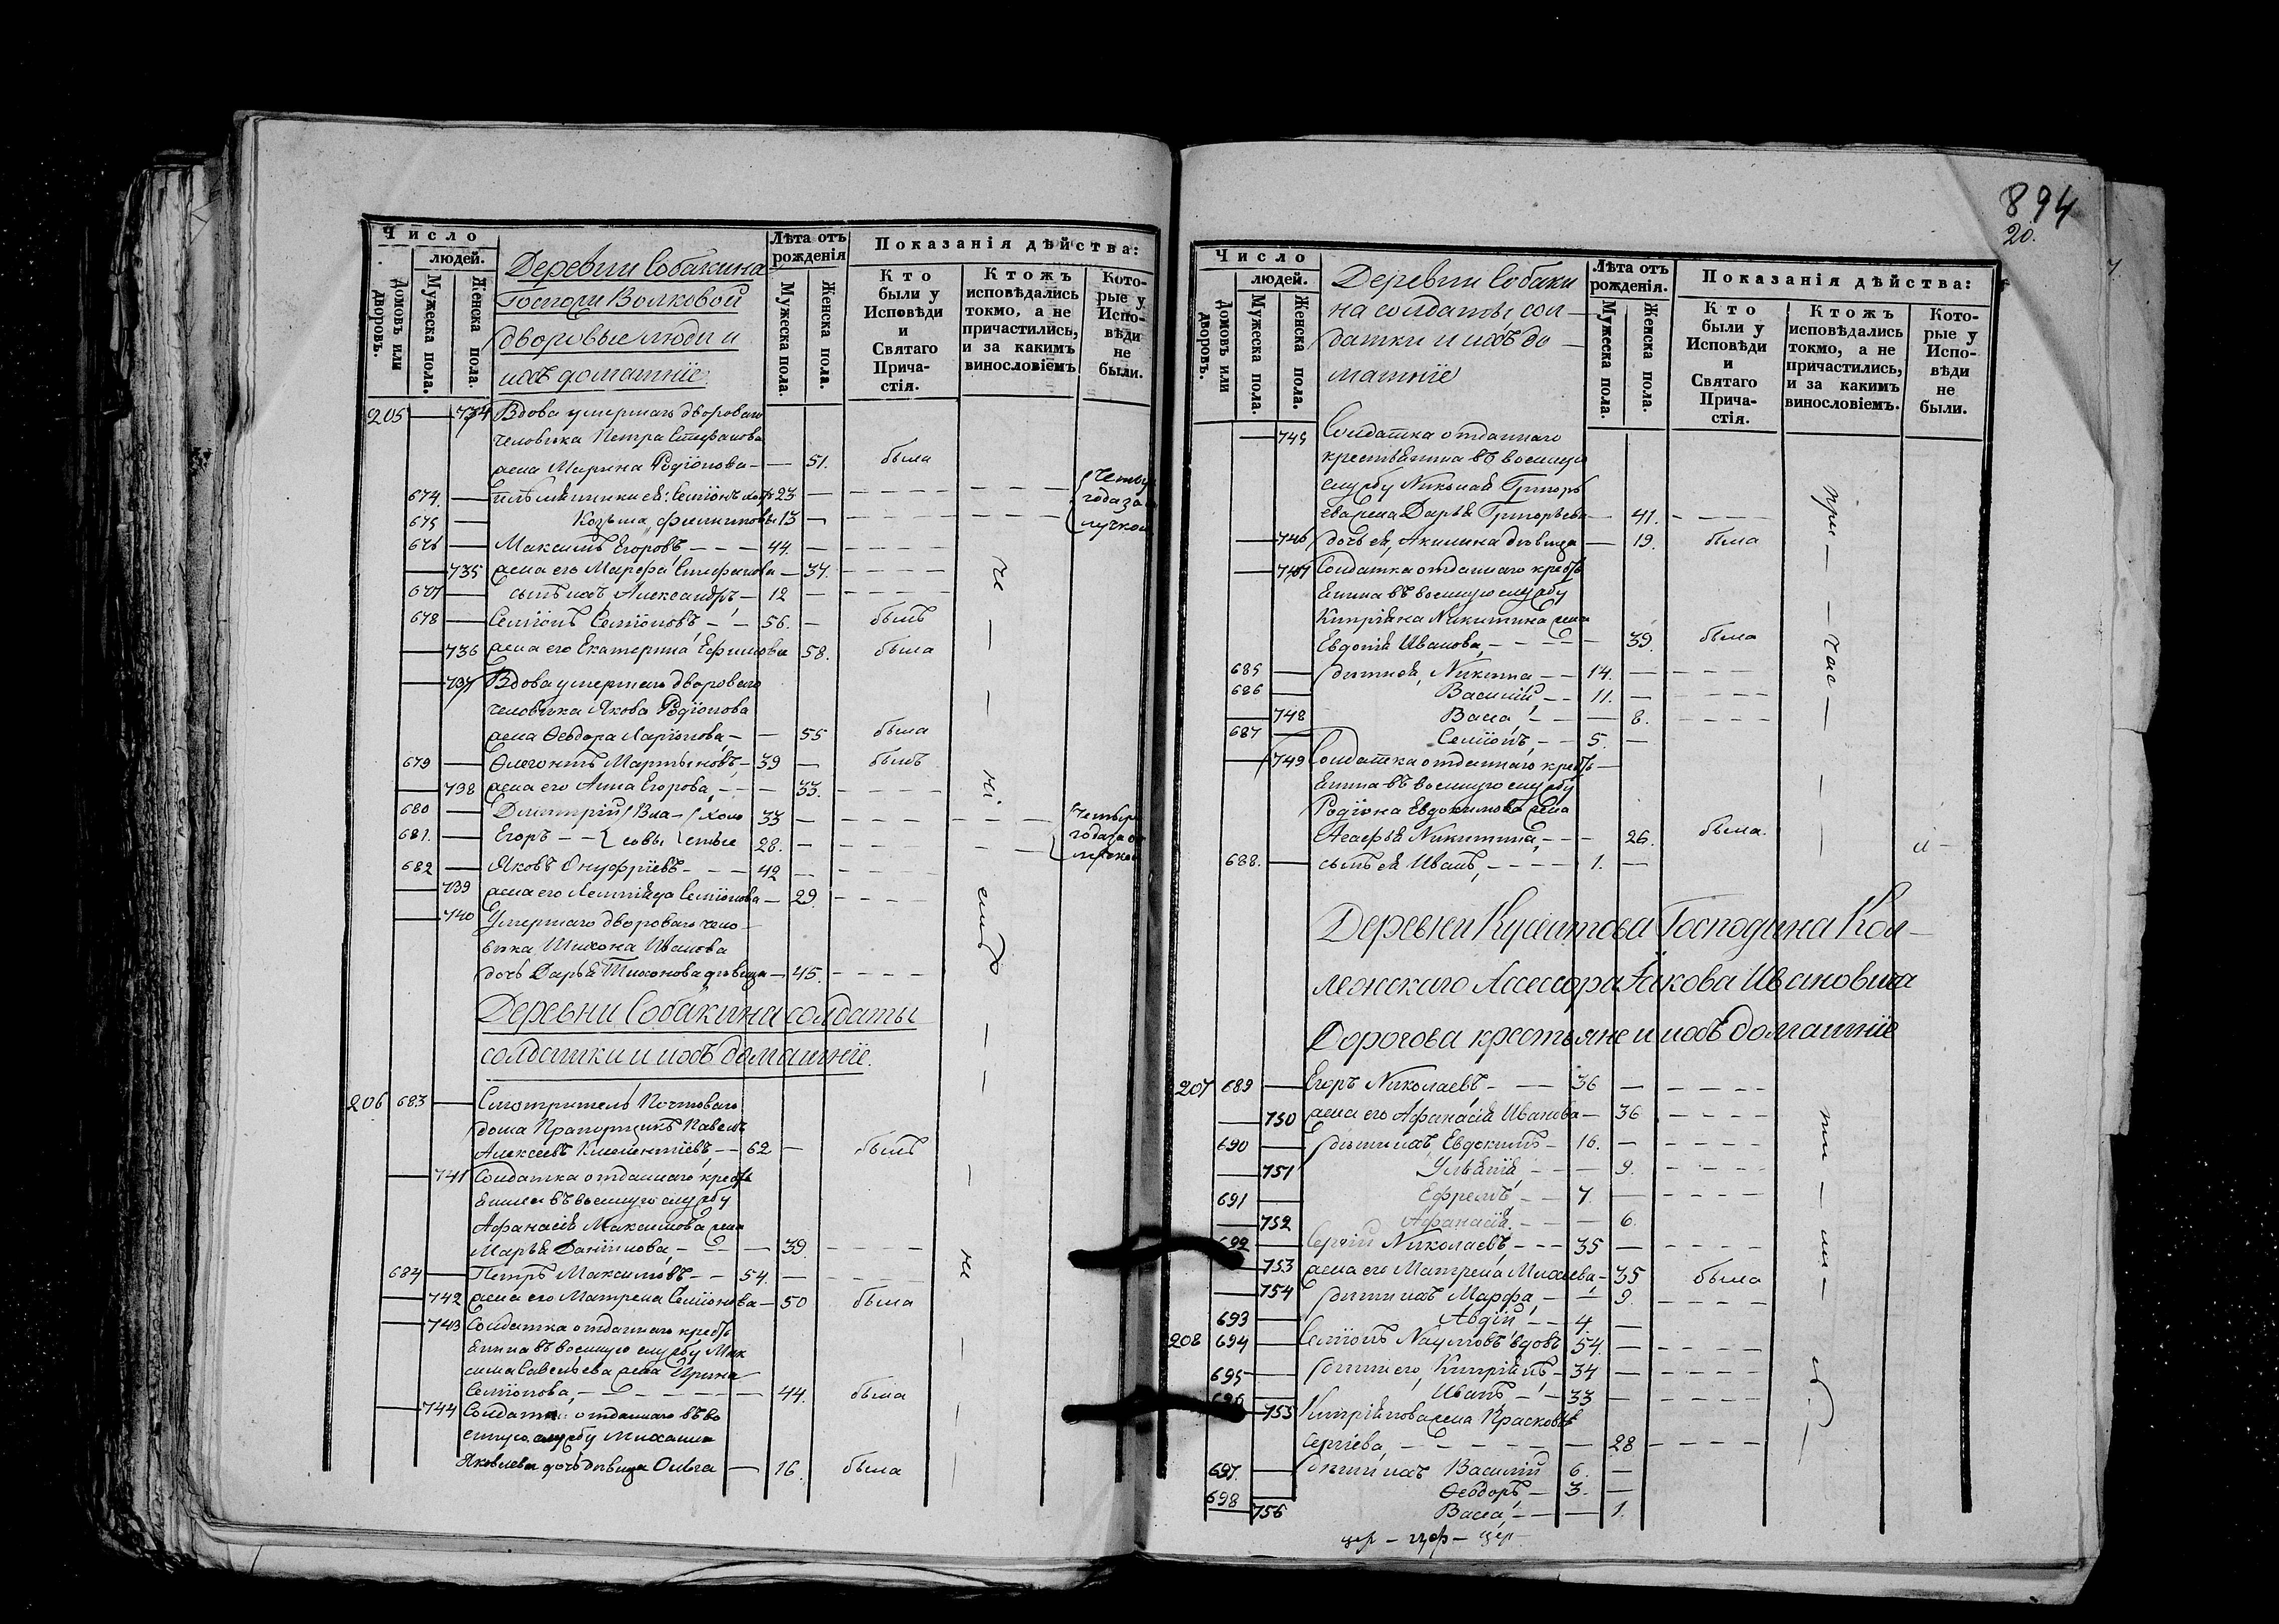 Число
людей.
Домовъ или дворовъ.
Мужеска пола.
Женска пола.
Деревни Собакина
Госпожи Волковой
дворовые люди и
ихъ домашніе
Лѣта отъ рожденія
Мужеска пола.
Женска пола.
Показанія дѣйства:
Кто были у Исповѣди и Святаго Причастія.
Ктожъ исповѣдались токмо, а не причастились, и за какимъ винословіемъ
Которые у Исповѣди не были.
205 — 734 Вдова умершаго двороваго
человѣка Петра Стефанова
жена Марина Родіонова — — 51. была
674. — племянники ея: Семіонъ 23 —
675 — Козьма Филиповы 13 —
676 — Максимъ Егоровъ — — — 44. —
— 735 жена его Марфа Стефанова — 37.
677 — сынъ ихъ Александръ — 12 —
678 — Семіонъ Семіоновъ — — 56. — былъ
— 736 жена его Екатерина Ефимова 58. была
— 737 Вдова умершаго двороваго
человѣка Якова Родіонова
жена Ѳеодора Ларіонова, — — 55 была
679 — Мартыновъ, — 39 — былъ
— 738 жена его Анна Егорова, — — — 33.
680 — Димитрій Вла- холо 33 —
681. — Егоръ — — совы стые 28. —
682 — Яковъ Онуфріевъ — — — 42 —
— 739 жена его Семіонова — 29.
— 740 Умершаго двороваго чело-
вѣка Тихона Иванова
дочь Дарья Тихонова дѣвица — 45.
Деревни Собакина солдаты
солдатки и ихъ домашніе.
206 683 — Смотритель Почтоваго
дома Прапорщикъ Павелъ
Алексеевъ — — 62 — былъ
— 741 Солдатка отданнаго кресть
янина въ военную службу
Афанасія Максимова жена
Марья Даніилова, — — — 39.
684 — Петръ Максимовъ — — 54. —
— 742 жена его Матрена Семіонова — 50 была
— 743 Солдатка отданнаго кресть
янина въ военную службу Мак
сима Савельева жена Ирина
Семіонова, — — — — 44. была
— 744 Солдата отданнаго въ во
енную службу Михаила
Яковлева дочь дѣвица Ольга — 16. была
894
20.
Число
людей.
Домовъ или дворовъ.
Мужеска пола.
Женска пола.
Деревни Собаки
на солдаты сол —
датки и ихъ до —
машніе
Лѣта отъ рожденія.
Мужеска пола.
Женска пола.
Показанія дѣйства:
Кто были у Исповѣди и Святаго Причастія.
Ктожъ исповѣдались токмо, а не причастились, и за какимъ винословіемъ.
Которые у Исповѣди не были.
— 745 Солдатка отданнаго
крестьянина въ военную
службу Николая Григорь
ева жена Дарья Григорьева — 41.
— 746 дочь ея, Акилина дѣвица — 19. была
— 747 Солдатка отданнаго кресть
янина въ военную службу
Кипріяна Никитина жена
Евдокія Иванова, — — — — 39. была
685 — дѣти ея, Никита — — 14. —
686 — Василій, — — 11. —
— 748 Васса, — — — 8.
687 — Семіонъ, — — 5. —
— 749 Солдатка отданнаго кресть —
янина въ военную службу
Родіона Евдокимова жена
Агафья Никитина, — — — 26. была.
688. — сынъ ея Иванъ, — — — — 1. —
Деревни Господина Кол —
лежскаго Ассессора Іакова Ивановича
Дорогова крестьяне и ихъ домашніе
207 689 — Егоръ Николаевъ, — — 36 —
— 750 жена его Афанасія Иванова — 36
690 — дѣти ихъ Евдокимъ — 16. —
— 751 Ульянія — — — 9.
691 — Ефремъ, — — 7. —
— 752 Афанасія. — — — 6.
692 — Сергій Николаевъ, — — — 35 —
— 753 жена его Матрена Михеева — 35 была
— 754 дѣти ихъ Марфа, — — 9.
693 — Авдій — — 4. —
208 694 — Семіонъ Наумовъ вдовъ 54. —
695 — дѣти его, Кипріянъ, — 34 —
696 — Иванъ — — 33 —
— 755 Кипріянова жена Прасковья
Сергіева, — — — — — 28
697. — дѣти ихъ Василій 6. —
698 — Ѳеодоръ, — 3. —
— 756 Васса, — — — 1.